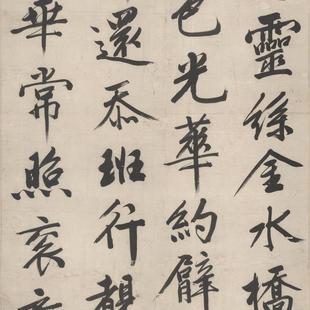 靈金水橋
色光華約臂
還忝班行
華常照袞